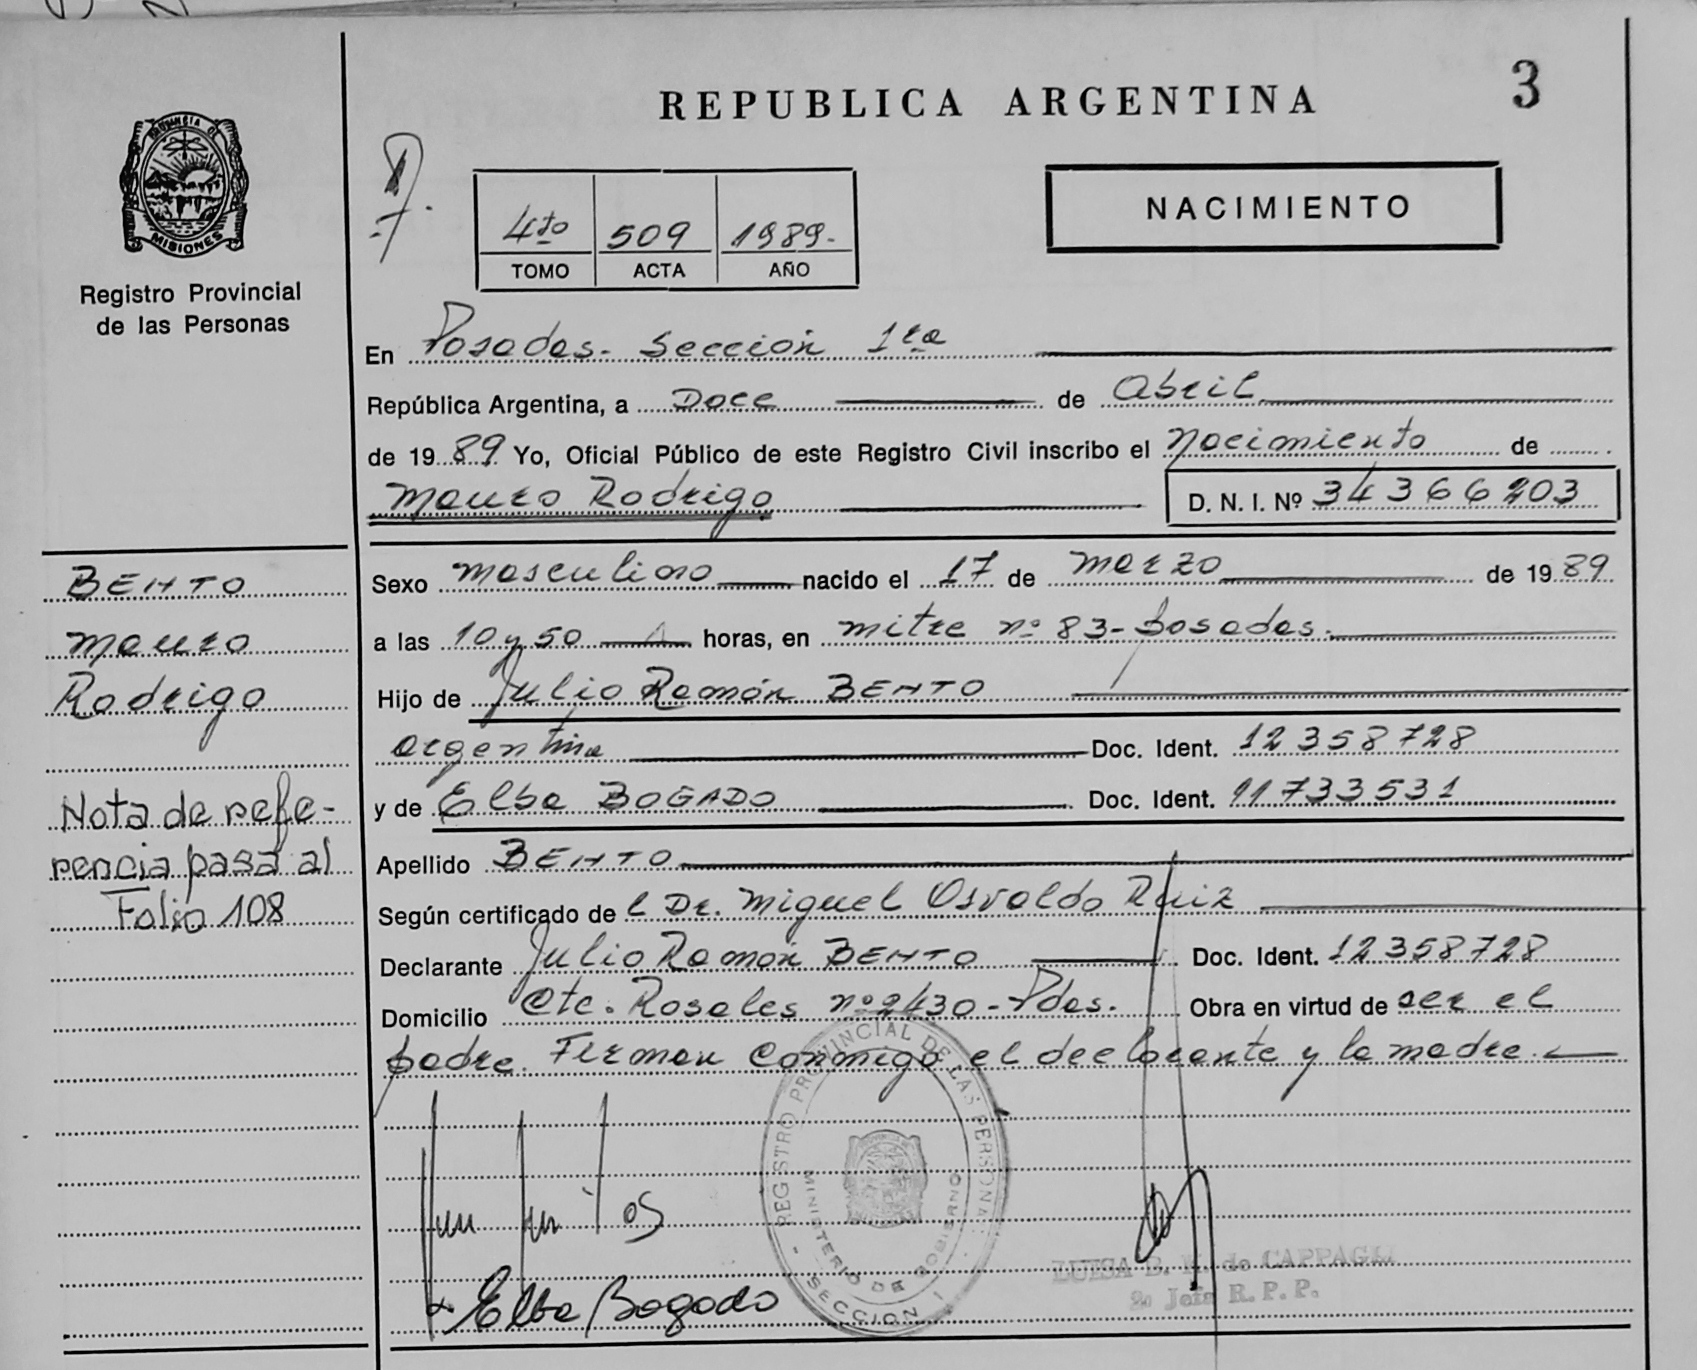 REPUBLICA ARGENTINA
3
PROVINCIA DE
MISIONES
Registro Provincial
de las Personas
4to 509 1989.-
TOMO ACTA AÑO
NACIMIENTO
En Posadas. Sección 1ra
República Argentina, a Doce de Abril
de 1989 Yo, Oficial Público de este Registro Civil inscribo el Nacimiento de
Mauro Rodrigo D. N. I. Nº 34366203
Sexo masculino nacido el 17 de marzo de 1989
a las 10 y 50 horas, en mitre nº 83- Posadas.
Hijo de Julio Ramón BENTO
argentina Doc. Ident. 12358728
y de Elba BOGADO Doc. Ident. 11733531
Apellido BENTO
Según certificado de l Dr. Miguel Osvaldo Ruiz
Declarante Julio Ramón BENTO Doc. Ident. 12358728
Domicilio Cte. Rosales nº 2430 - Pdas. Obra en virtud de ser el
padre. Firman conmigo el declarante y la madre.
BENTO
Mauro
Rodrigo
Nota de refe-
rencia pasa al
Folio 108
REGISTRO PROVINCIAL DE LAS PERSONAS
MINISTERIO DE GOBIERNO
SECCION 1
Elba Bogado
LUISA E. de CAPPAGLI
Jefa R. P. P.